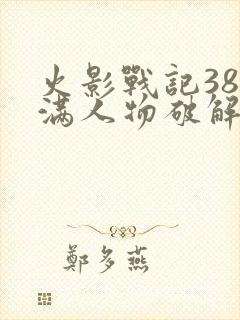 火影戰記38
滿人物破解
鄭多燕